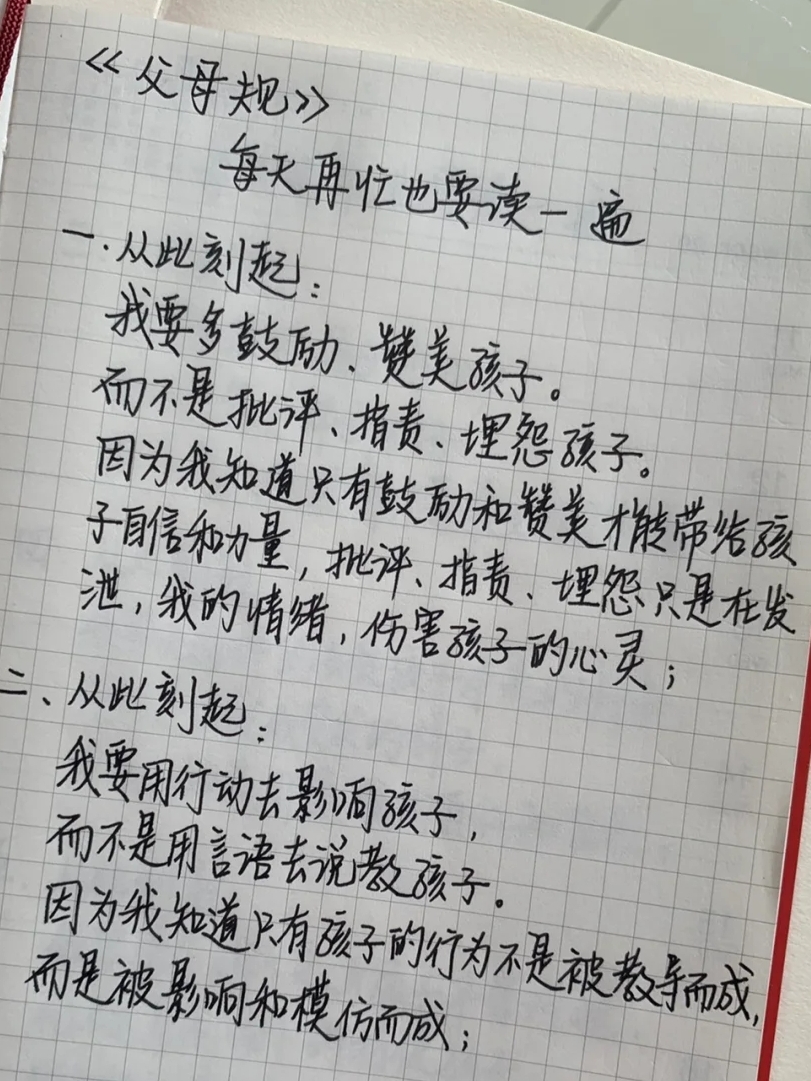 《父母规》
每天再忙也要读一遍
一.从此刻起：
我要多鼓励、赞美孩子。
而不是批评、指责、埋怨孩子。
因为我知道只有鼓励和赞美才能带给孩
子自信和力量，批评、指责、埋怨只是在发
泄，我的情绪，伤害孩子的心灵；
二、从此刻起：
我要用行动去影响孩子，
而不是用言语去说教孩子。
因为我知道只有孩子的行为不是被教导而成，
而是被影响和模仿而成；